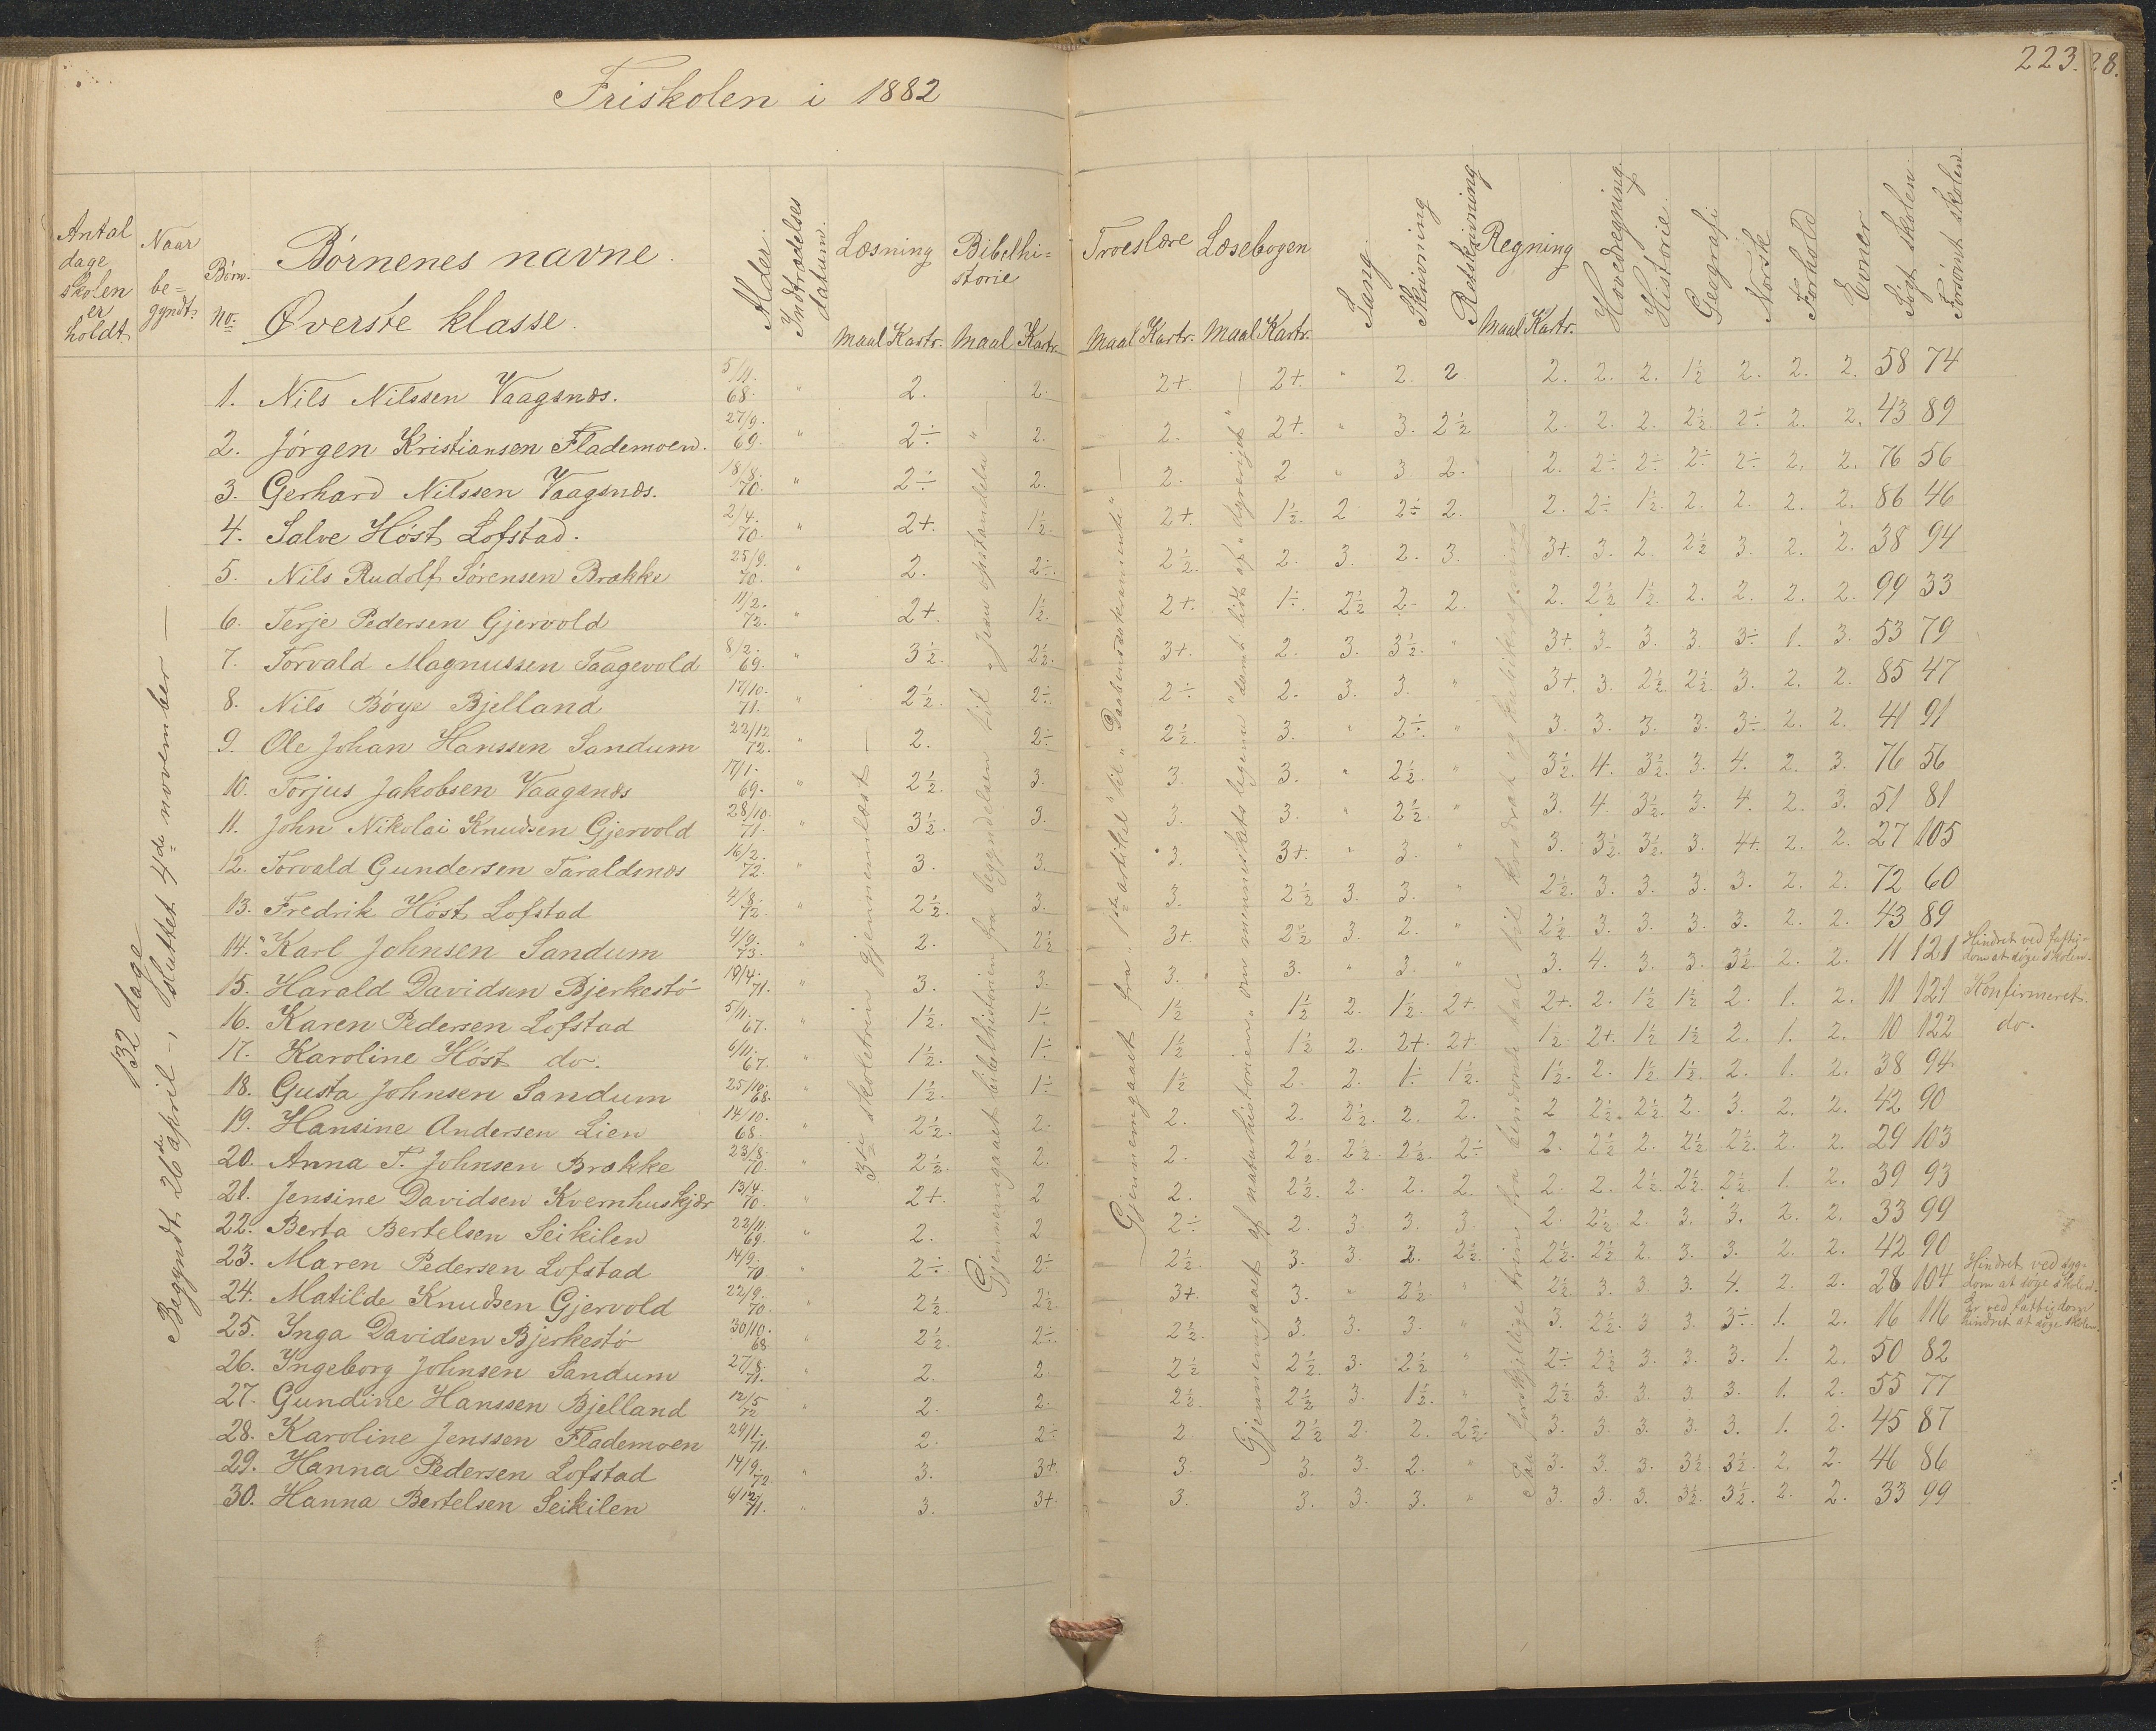 Friskolen i 1882
223.
28.
Antal dage skolen er holdt
Naar be=gyndt.
Børn. no.
Børnenes navne.
Øverste klasse.
Alder.
Indtrædelses datum.
Læsning Maal Kartr.
Bibelhi=storie Maal Kartr.
Troeslære Maal Kartr.
Læsebogen Maal Kartr.
Sang.
Skrivning
Retskrivning
Regning Maal Kartr.
Hovedregning.
Historie.
Geografi
Norsk
Forhold
Evner
Søgt skolen.
Forsømt skolen.
132 dage
Begyndt 26de april –, sluttet 4de november —
3die skoletrin gjennemlæst —
Gjennemgaaet bibelhistorien fra begyndelsen til „Jesu opstandelse" —
Gjennemgaaet fra „1ste artikel" til „Daabens sakramente" —
Gjennemgaaet af naturhistorien „om menneskets legeme" samt lidt af „dyreriget" —
Paa forskjellige trin fra
til kvadrat og kubikregning —
1. Nils Nilssen Vaagsnæs. 5/11. 68. " 2. 2. 2+. 2+. " 2. 2 2. 2. 2. 1½ 2. 2. 2. 58 74
2. Jørgen Kristiansen Flademoen. 27/9. 69. " 2÷ 2. 2. 2+. " 3. 2½ 2. 2. 2. 2½. 2÷ 2. 2. 43 89
3. Gerhard Nilssen Vaagsnæs. 18/8. 70. " 2÷ 2. 2. 2. " 3. 2. 2. 2÷ 2÷ 2÷ 2÷ 2. 2. 76 56
4. Salve Høst Lofstad. 2/4. 70. " 2+. 1½. 2+. 1½. 2. 2÷ 2. 2. 2÷ 1½. 2. 2. 2. 2. 86 46
5. Nils Rudolf Sørensen Brække 25/9. 70. " 2. 2÷. 2½. 2. 3. 2. 3. 3+. 3. 2. 2½ 3. 2. 2. 38 94
6. Terje Pedersen Gjervold 11/2. 72. " 2+. 1½. 2+. 1÷. 2½ 2. 2. 2. 2½ 1½. 2. 2. 2. 2. 99 33
7. Torvald Magnussen Taagevold 8/2. 69. " 3½. 2½. 3+. 2. 3. 3½. " 3+. 3. 3. 3. 3÷ 1. 3. 53 79
8. Nils Bøye Bjelland 17/10. 71. " 2½. 2÷ 2÷ 2. 3. 3. " 3+. 3. 2½. 2½. 3. 2. 2. 85 47
9. Ole Johan Hanssen Sandum 22/12 72. " 2. 2÷ 2½. 3. " 2÷ " 3. 3. 3. 3. 3÷ 2. 2. 41 91
10. Torjus Jakobsen Vaagsnæs 17/1. 69. " 2½. 3. 3. 3. " 2½. " 3½. 4. 3½. 3. 4. 2. 3. 76 56
11. John Nikolai Knudsen Gjervold 28/10. 71. " 3½. 3. 3. 3. " 2½. " 3. 4. 3½. 3. 4. 2. 3. 51 81
12. Torvald Gundersen Taraldsnæs 16/2. 72. " 3. 3. 3. 3+. " 3. " 3. 3½. 3½. 3. 4+. 2. 2. 27 105
13. Fredrik Høst Lofstad 4/8. 72. " 2½. 3. 3. 2½ 3. 3. " 2½. 3. 3. 3. 3. 2. 2. 72 60
14. Karl Johnsen Sandum 4/9. 73. " 2. 2½ 3+ 2½ 3. 2. " 2½. 3. 3. 3. 3. 2. 2. 43 89
15. Harald Davidsen Bjerkestø 19/4. 71. " 3. 3. 3. 3. " 3. " 3. 4. 3. 3. 3½. 2. 2. 11 121 Hindret ved fattig=dom at søge skolen.
16. Karen Pedersen Lofstad 5/11. 67. " 1½. 1÷ 1½ 1½ 2. 1½. 2+. 2+. 2. 1½ 1½ 2. 1. 2. 11 121 Konfirmeret.
17. Karoline Høst do. 6/11. 67. " 1½. 1÷ 1½ 1½ 2. 2+. 2+. 1½. 2+. 1½ 1½ 2. 1. 2. 10 122 do.
18. Gusta Johnsen Sandum 25/10. 68. " 1½. 1÷ 1½ 2. 2. 1÷ 1½. 1½. 2. 1½. 1½. 2. 1. 2. 38 94
19. Hansine Andersen Lien 14/10. 68. " 2½. 2. 2. 2. 2½. 2. 2. 2 2½. 2½. 2. 3. 2. 2. 42 90
20. Anna T. Johnsen Brække 23/8. 70. " 2½. 2. 2. 2½. 2½. 2½. 2÷ 2. 2½ 2. 2½ 2½. 2. 2. 29 103
21. Jensine Davidsen Kvernhuskjær 13/4. 70. " 2+. 2 2. 2½. 2. 2. 2. 2. 2. 2½. 2½. 2½. 1. 2. 39 93
22. Berta Bertelsen Seikilen 22/11. 69. " 2. 2 2÷ 2. 3. 3. 3. 2. 2½ 2. 3. 3. 2. 2. 33 99
23. Maren Pedersen Lofstad 14/9. 70 " 2÷ 2÷ 2½. 3. 3. 2. 2½. 2½. 2½. 2. 3. 3. 2. 2. 42 90
24. Matilde Knudsen Gjervold 22/9. 70. " 2½. 2½. 3+. 3. " 2½. " 2½. 3. 3. 3. 4. 2. 2. 28 104 Hindret ved syg=dom at søge skolen.
25. Inga Davidsen Bjerkestø 30/10. 68. " 2½. 2÷. 2½. 3. 3. 3. " 3. 2½. 3. 3. 3÷. 1. 2. 16 116 Er ved fattigdom hindret at søge skolen.
26. Ingeborg Johnsen Sandum 27/8. 71. " 2. 2. 2½ 2½. 3. 2½ " 2÷ 2½ 3. 3. 3. 1. 2. 50 82
27. Gundine Hanssen Bjelland 12/5 72 " 2. 2. 2½. 2½ 3. 1½. " 2½. 3. 3. 3. 3. 1. 2. 55 77
28. Karoline Jenssen Flademoen 29/11. 71. " 2. 2÷ 2. 2½ 2. 2. 2½. 3. 3. 3. 3. 3. 1. 2. 45 87
29. Hanna Pedersen Lofstad 14/9. 72 " 3. 3+. 3. 3. 3. 2. " 3. 3. 3. 3½. 3½. 2. 2. 46 86
30. Hanna Bertelsen Seikilen 6/12. 71. " 3. 3+. 3. 3. 3. 3. " 3. 3. 3. 3½. 3½. 2. 2. 33 99